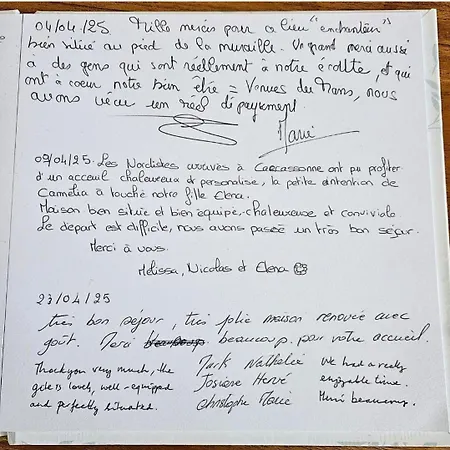 04/04/25 Mille mercis pour ce lieu "enchanteur"
bien situé au pied de la muraille. Un grand merci aussi
à des gens qui sont réellement à notre écoute, et qui
ont à coeur notre bien être = Venues du Mans, nous
avons vécu un réel dépaysement.
Marie
09/04/25. Les Nordistes arrivés à Carcassonne ont pu profiter
d'un acceuil chaleureux et personalisé, la petite attention de
Camélia à touché notre fille Elena.
Maison bien située et bien équipée, chaleureuse et conviviale
Le départ est difficile, nous avons passé un très bon séjour.
Merci à vous.
Melissa, Nicolas et Elena
23/04/25
très bon séjour, très jolie maison renovée avec
goût. Merci beaucoup pour votre accueil.
Thank you very much, the
gite is lovely, well-equipped
and perfectly situated.
Mark Nathalie
Josiane Hervé
Christophe Marie
We had a really
enjoyable time.
Merci beaucoup.